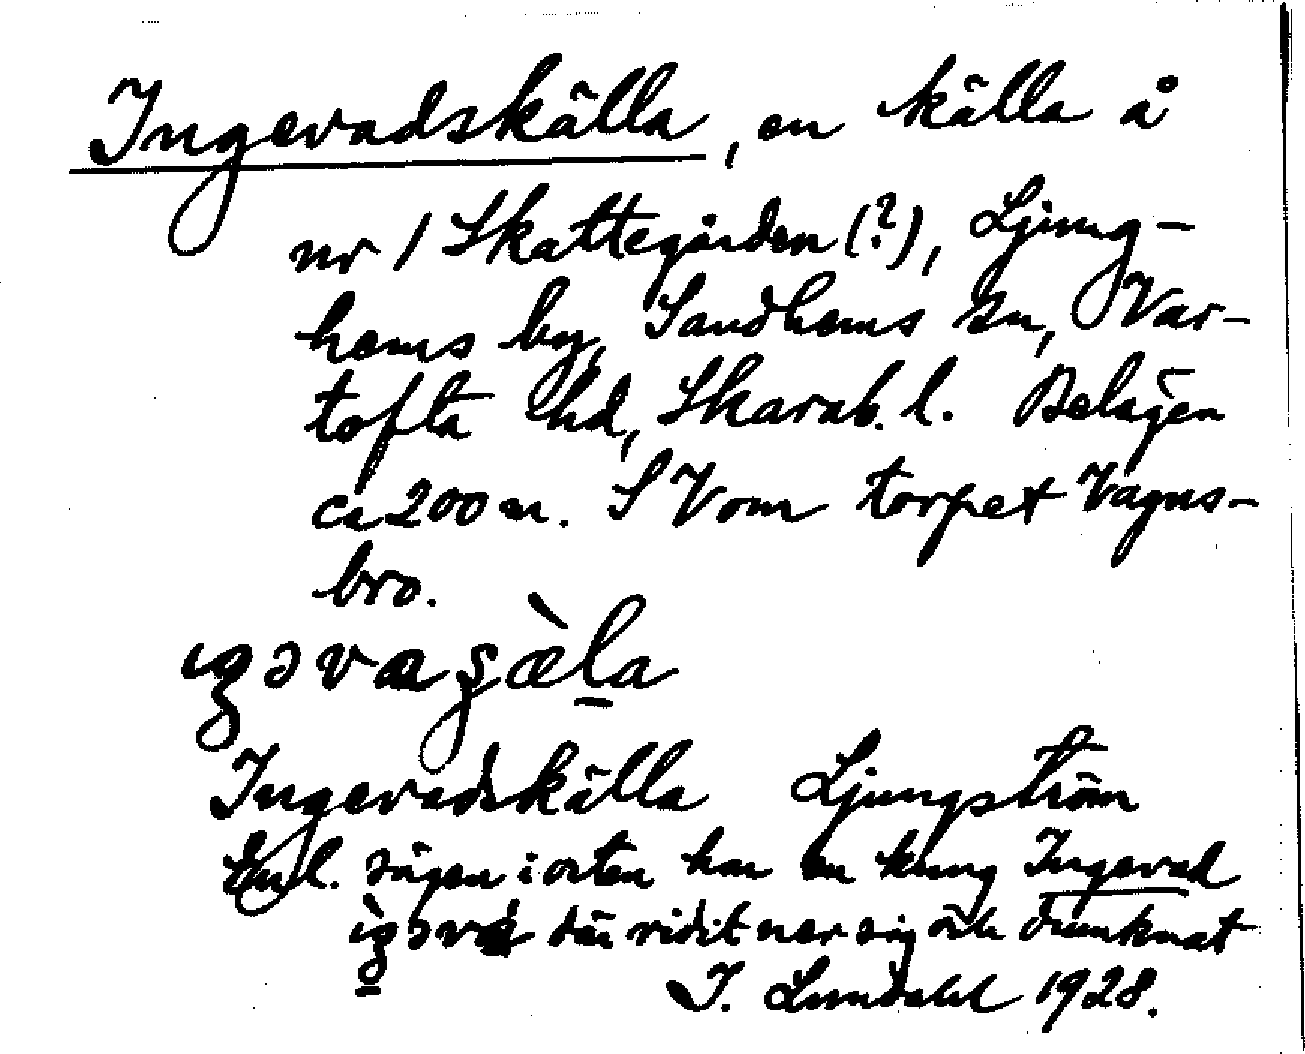 Ingevadskälla, en källa å
nr 1 Skattegården (?), Ljung-
hems by, Sandhems sn, Var-
tofta hd, Skarab. l. Belägen
ca 200 m. S V om torpet Vagns-
bro.
Ingevadskälla Ljungström
Enl. sägen i orten har en kung Ingevad
där ridit ner sig och drunknat
I. Lundahl 1928.